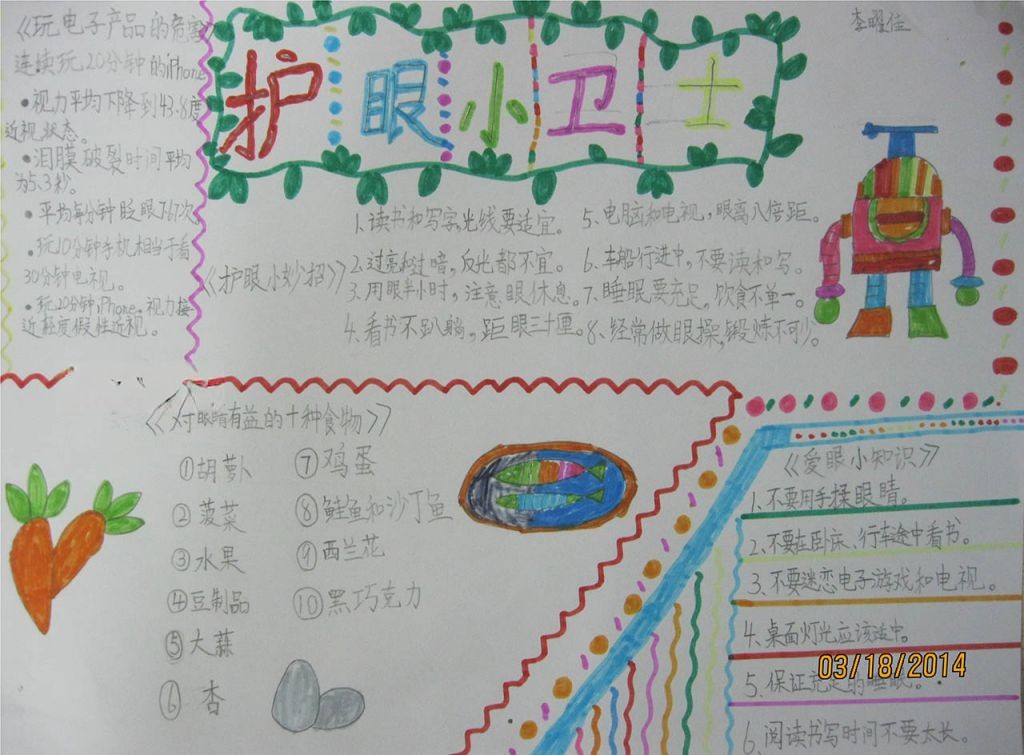 护眼小卫士
李曜佳
《玩电子产品的危害》
连续玩20分钟的iPhone
•视力平均下降到43.8度
近视状态。
•泪膜破裂时间平均
为5.3秒。
•平均每分钟眨眼7.67次
•玩10分钟手机相当于看
30分钟电视。
•玩20分钟iPhone,视力接
近轻度假性近视。
《护眼小妙招》
1.读书和写字,光线要适宜。
2.过亮和过暗,反光都不宜。
3.用眼半小时,注意眼休息。
4.看书不趴躺,距眼三十厘。
5.电脑和电视,眼离八倍距。
6.车船行进中,不要读和写。
7.睡眠要充足,饮食不单一。
8.经常做眼操,锻炼不可少。
《对眼睛有益的十种食物》
①胡萝卜
②菠菜
③水果
④豆制品
⑤大蒜
⑥杏
⑦鸡蛋
⑧鲑鱼和沙丁鱼
⑨西兰花
⑩黑巧克力
《爱眼小知识》
1.不要用手揉眼睛。
2.不要在卧床、行车途中看书。
3.不要迷恋电子游戏和电视。
4.桌面灯光应该适中。
5.保证充足的睡眠。
6.阅读书写时间不要太长。
03/18/2014